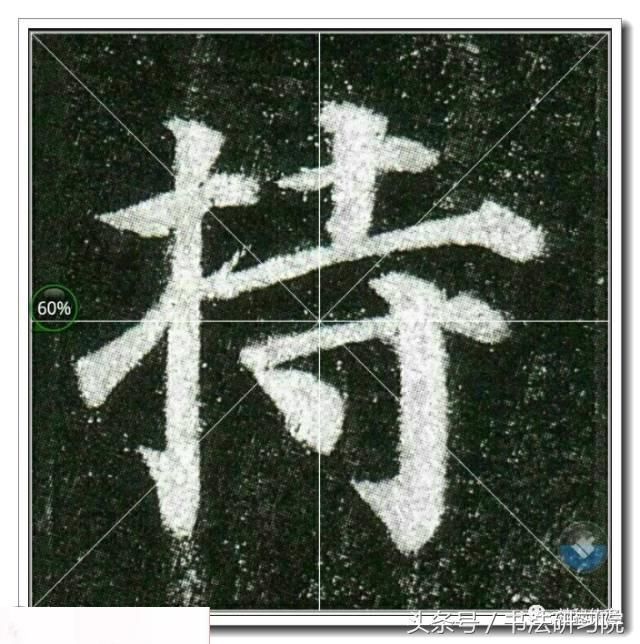 持
60%
头条号 / 书法研习院